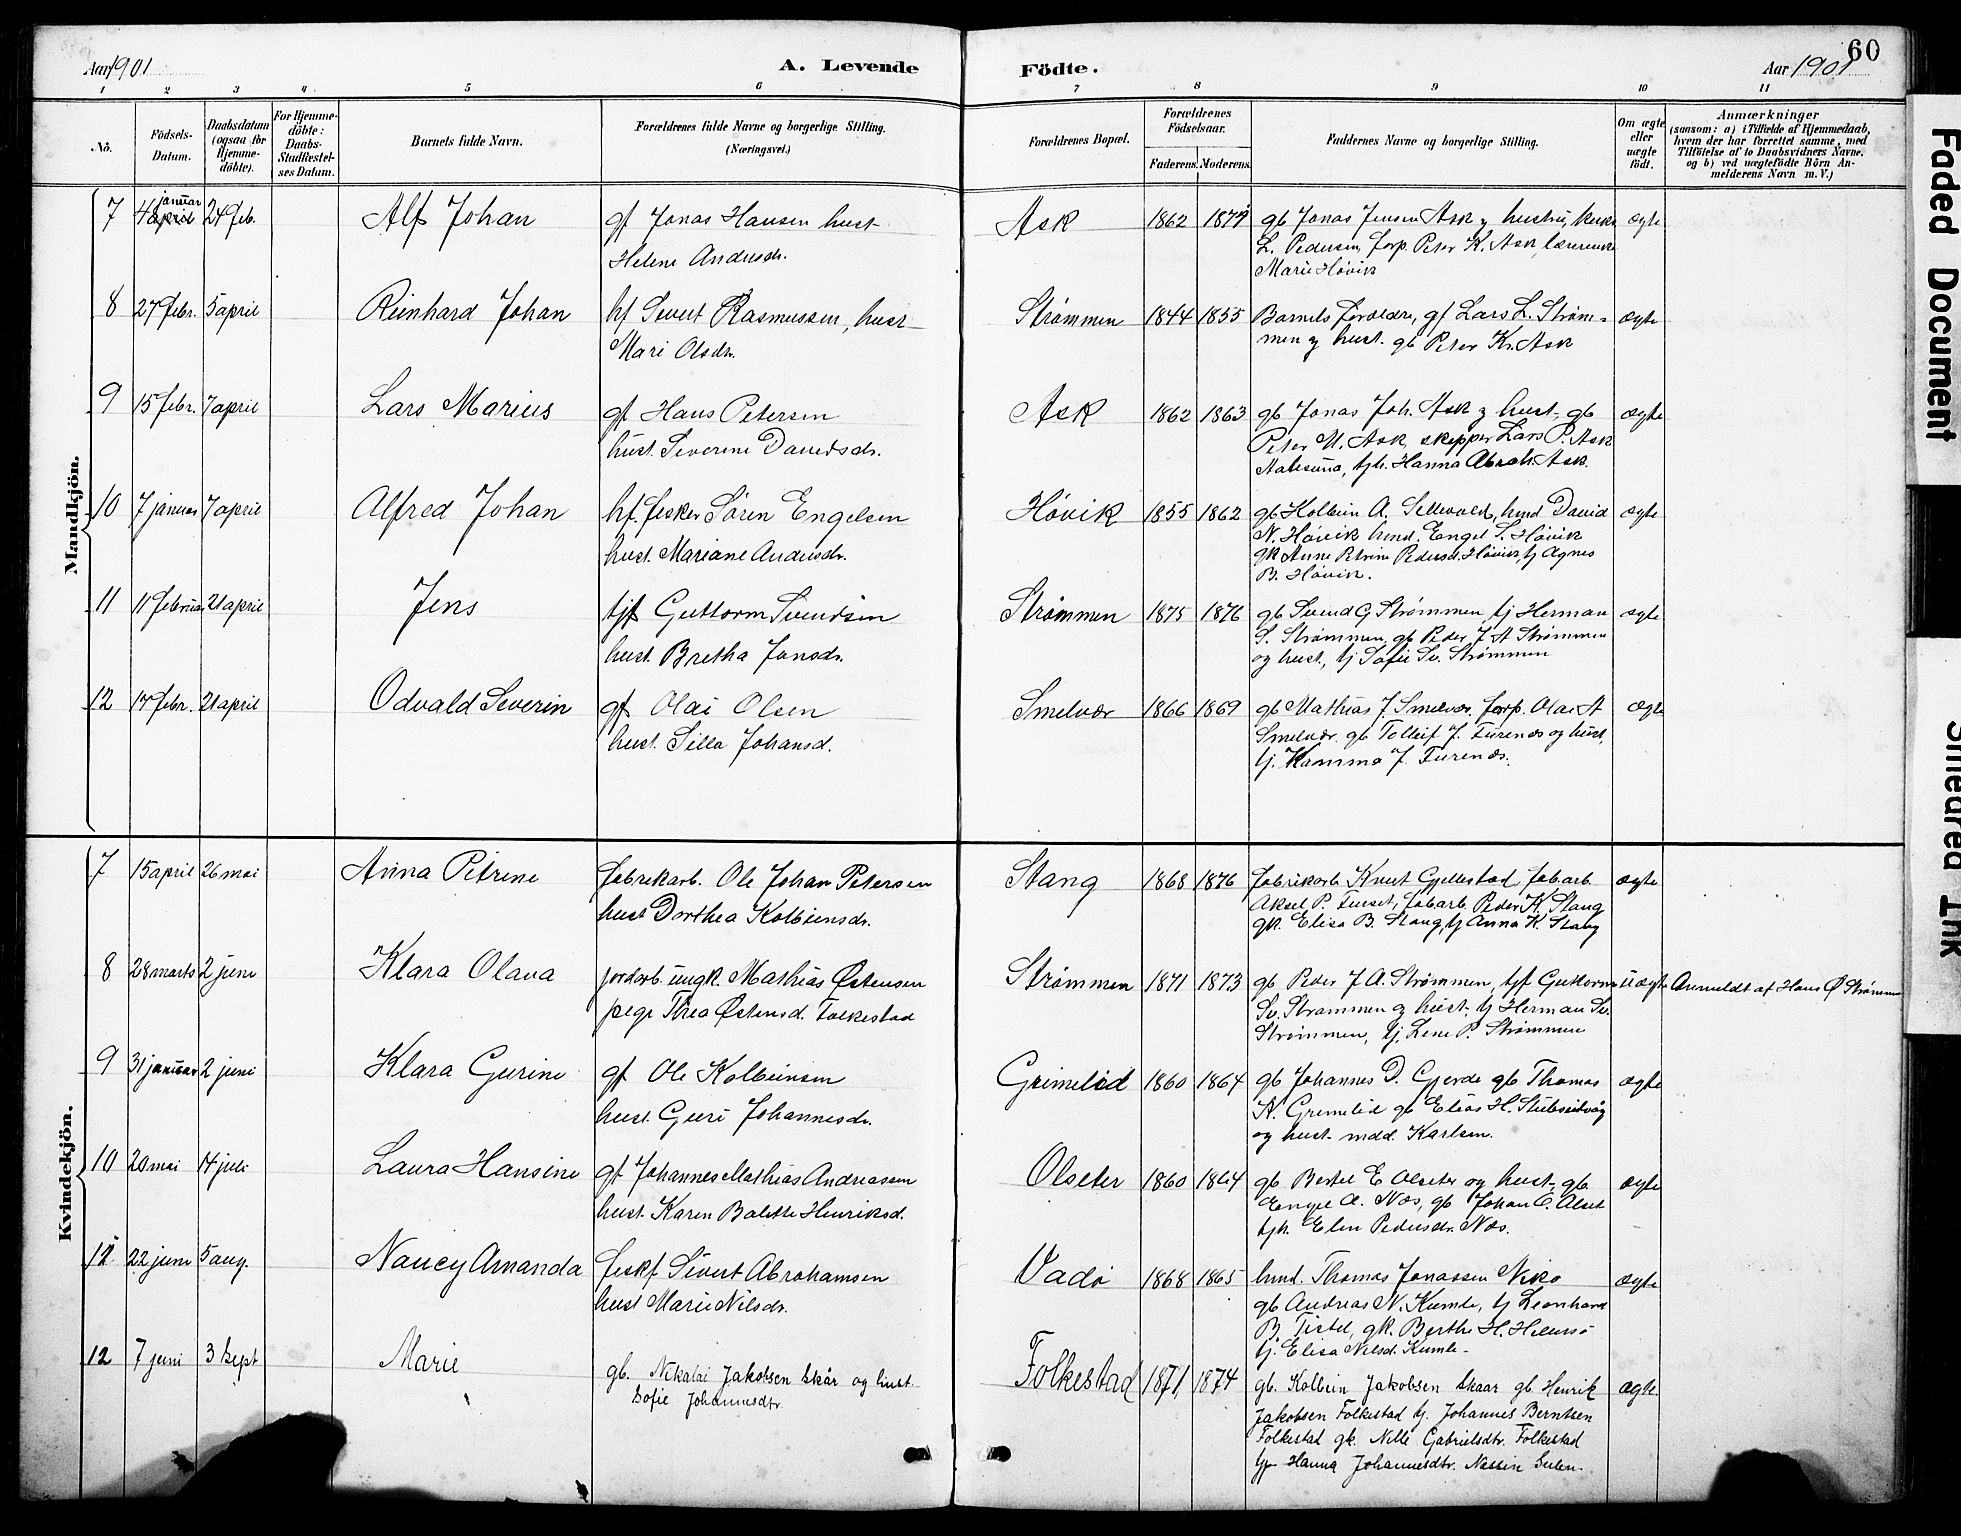 60
Aar 1901
A. Levende
Födte.
Aar 1901
1 2 3 4 5 6 7 8 9 10 11
No.
Födsels-
Datum.
Daabsdatum
(ogsaa for
Hjemme-
döbte).
For Hjemme-
döbte:
Daabs-
Stadfestel-
ses Datum.
Barnets fulde Navn.
Forældrenes fulde Navne og borgerlige Stilling.
(Næringsvei.)
Forældrenes Bopæl.
Forældrenes
Födselsaar.
Faderens. Moderens.
Faddernes Navne og borgerlige Stilling.
Om ægte
eller
uægte
födt.
Anmærkninger
(saasom: a) i Tilfælde af Hjemmedaab,
hvem der har forrettet samme, med
Tilföielse af to Daabsvidners Navne,
og b) ved uægtefödte Börn An-
melderens Navn m. V.)
Mandkjön.
januar
7 4 april 24 feb. Alf Johan gf Jonas Hansen hust Ask 1862 1874 gb Jonas Jensen Ask & hustru,
Helene Andersdr. L. Pedersen, forp. Peter K. Ask,
Marie Høvik
ægte
8 27 febr. 5 april Reinhard Johan hf Sivert Rasmussen, hust Strømmen 1844 1855 Barnets foreldre, gf Lars L. Strøm- ægte
Mari Olsdr. men & hust. gb Peter Kr. Ask
9 15 febr. 7 april Lars Marius gf Hans Petersen Ask 1862 1863 gb Jonas Joh. Ask & hust, gb ægte
hust. Severine Davidsdr. Peter M. Ask, skipper Lars P. Ask
tjh. Hanna Abrah. Ask.
10 7 januar 7 april Alfred Johan hf. fisker Søren Engelsen Høvik 1855 1862 gb Kolbein A. Sellevold, hmd David ægte
hust Mariane Andersdr. N. Høvik hmd. Engel S. Høvik
gk Anne Petrine Pedersd. Høvik, tj Agnes
B. Høvik.
11 11 februar 21 april Jens tjf Guttorm Svendsen Strømmen 1875 1876 gb Svend G Strømmen tj Herman ægte
hust. Bretha Jonsdr. S. Strømmen, gb Peder J A Strømmen
og hust, tj Sofie Sv. Strømmen
12 17 febr. 21 april Odvald Severin gf Olai Olsen Smelvær 1866 1869 gb Mathias J. Smelvær, forp. Olai A ægte
hust. Silla Johansd. Smelvær. gb Tolleif J. Furenæs og hust,
tj. Kamma J. Furenæs.
Kvindekjön.
7 15 april 26 mai Anna Petrine fabrikarb. Ole Johan Petersen Stang 1868 1876 fabrikarb Knut Gjellestad, fabarb. ægte
hust Dorthea Kolbeinsdr. Aksel P. Furset, fabarb. Peder K. Stang
gk. Elisa B. Stang, tj Anna K. Stang
8 28 marts 2 juni Klara Olava jordarb ungk. Mathias Østensen Strømmen 1871 1873 gb Peder J A. Strømmen, tjf Guttorm uægte Anmeldt af Hans Ø Strømmen
pege Thea Østensd. Folkestad Sv. Strømmen & hust, tj Herman Sv.
Strømmen, tj. Lene P. Strømmen
9 31 januar 2 juni Klara Gurine gf Ole Kolbeinsen Grimelid 1860 1864 gb Johannes D. Gjerde gb Thomas ægte
hust Guri Johannesdr. A. Grimelid gb Elias H.
og hust mdd. Karlsen.
10 20 mai 14 juli Laura Hansine gf Johannes Mathias Andreassen Olseter 1860 1864 gb Bertel E Olseter og hust, gb. ægte
hust. Karen Bolette Henriksd. Engel A. Næs, gb Johan O. Alset
tjh. Elen Pedersdr. Næs.
11 22 juni 5 aug. Nancy Amanda fiskf Sivert Abrahamsen Vadø 1868 1865 hmd. Thomas Jonassen Neko ægte
hust Marie Nilsdr. gb Andreas N. Kumle, tj Leonhard
B. Tistel, gk. Berthe H. Hellersø
tj. Elisa Nilsd. Kumle.
12 7 juni 3 Sept Marie gb. Nikolai Jakobsen Skår og hust. Folkestad 1871 1874 gb. Kolbein Jakobsen Skaar gb Henrik ægte
Sofie Johannesdtr. Jakobsen Folkestad tj. Johannes Berntsen
Folkestad gk. Nille Gabrielsdtr. Folkestad
tjp Hanna Johannesdtr. Nessin Sulen.
Faded Document
Smeared Ink